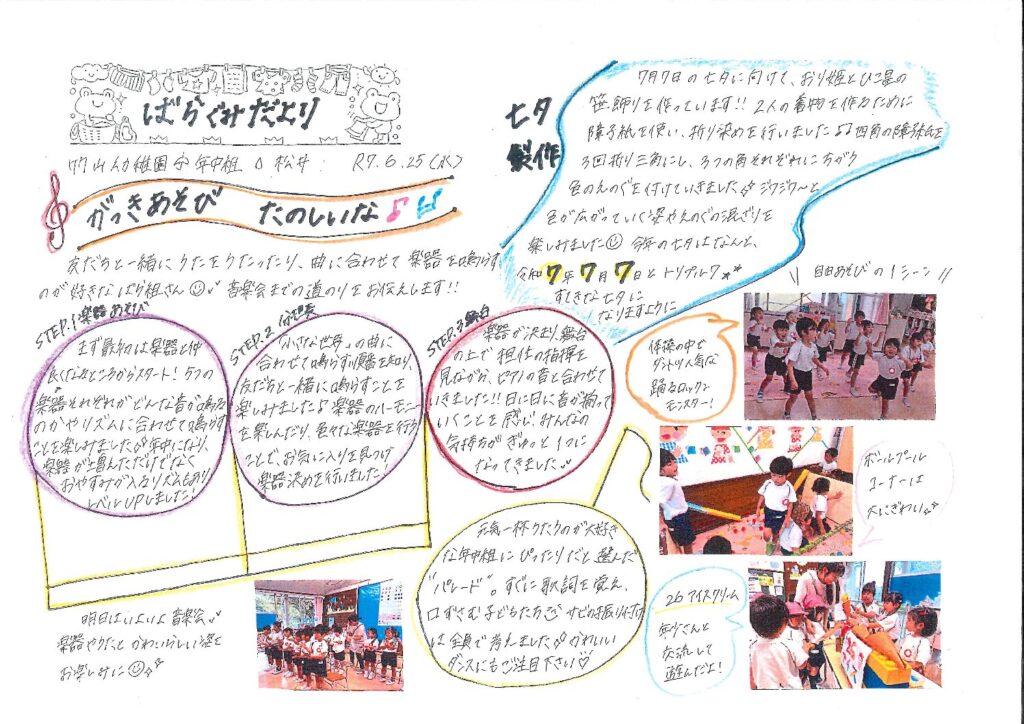 ばらぐみだより
竹山幼稚園 年中組 松井 R7.6.25(水)
がっきあそび たのしいな♪
友だちと一緒にうたをうたったり、曲に合わせて楽器を鳴らす
のが好きなばら組さん 音楽会までの道のりをお伝えします!!
STEP.1 楽器あそび
まず最初は楽器と仲
良くなるところからスタート! 5つの
楽器それぞれがどんな音が鳴る
のかやリズムに合わせて鳴らす
ことを楽しみました♪年中になり、
楽器が増えただけでなく
おやすみが入るリズムもあり
レベルUPしました!
STEP.2
"小さな世界"の曲に
合わせて鳴らす順番を知り、
友だちと一緒に鳴らすことを
楽しみました♪ 楽器のハーモニー
を楽しんだり、色々な楽器を行う
ことで、お気に入りを見つけ
楽器決めを行いました!
STEP.3 舞台
楽器が決まり、舞台
の上で担任の指揮を
見ながら、ピアノの音と合わせて
いきました!! 日に日に音が揃って
いくことを感じ、みんなの
気持ちがぎゅっと1つに
なってきました
元気一杯うたうのが大好き
な年中組にぴったりだと選んだ
"パレード"。すぐに歌詞を覚え、
口ずさむ子どもたち サビの振り付け
は全員で考えました♪ かわいい
ダンスにもご注目下さい♡
明日はいよいよ音楽会
楽器やうたと かわいらしい姿を
お楽しみに
七夕
製作
7月7日の七夕に向けて、おり姫とひこ星の
笹飾りを作っています!! 2人の着物を作るために
障子紙を使い、折り染めを行いました♪♪ 四角の障子紙を
3回折り三角にし、3つの角それぞれにちがう
色のえのぐを付けていきました ジワジワ〜と
色が広がっていく姿やえのぐの混ざりを
楽しみました 今年の七夕はなんと、
令和7年7月7日とトリプル7
すてきな七夕に
なりますように
\\ 自由あそびの1シーン //
体操の中で
ダントツ人気な
踊るロックン
モンスター!
ボールプール
コーナーは
大にぎわい
26アイスクリーム
年少さんと
交流して
遊んだよ!